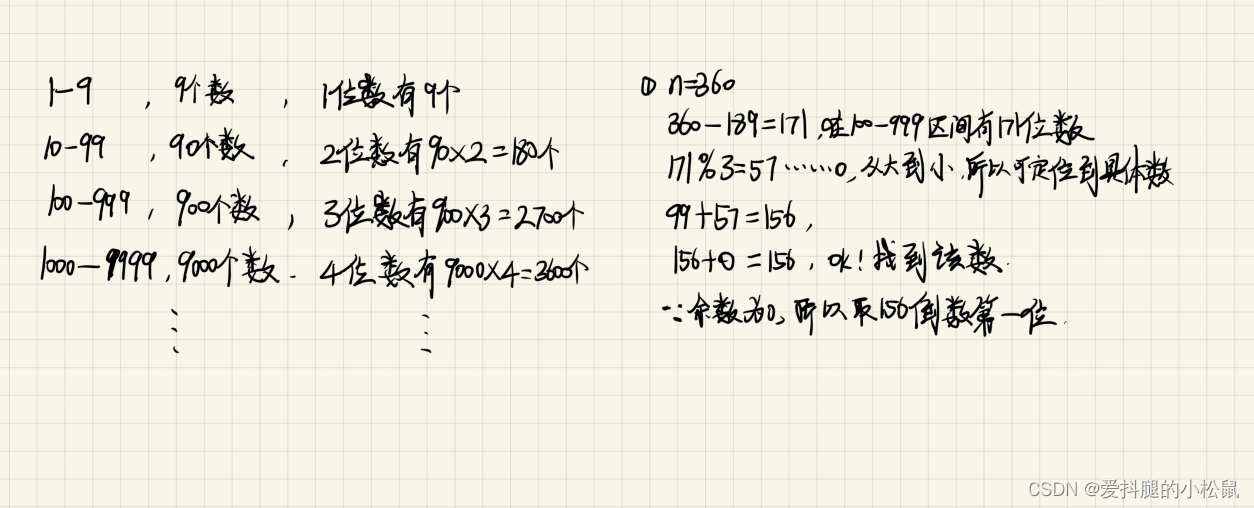 1-9 , 9个数 , 1位数有9个
10-99 , 90个数 , 2位数有90×2=180个
100-999 , 900个数 , 3位数有900×3=2700个
1000-9999 , 9000个数 . 4位数有9000×4=3600个
⋮ ⋮
① n=360
360-189=171 ,在100-999区间有171位数
171%3=57……0,从大到小,所以可定位到具体数
99+57=156,
156+0=156, ok!找到该数.
∵余数为0,所以取156倒数第一位.
CSDN @爱抖腿的小松鼠